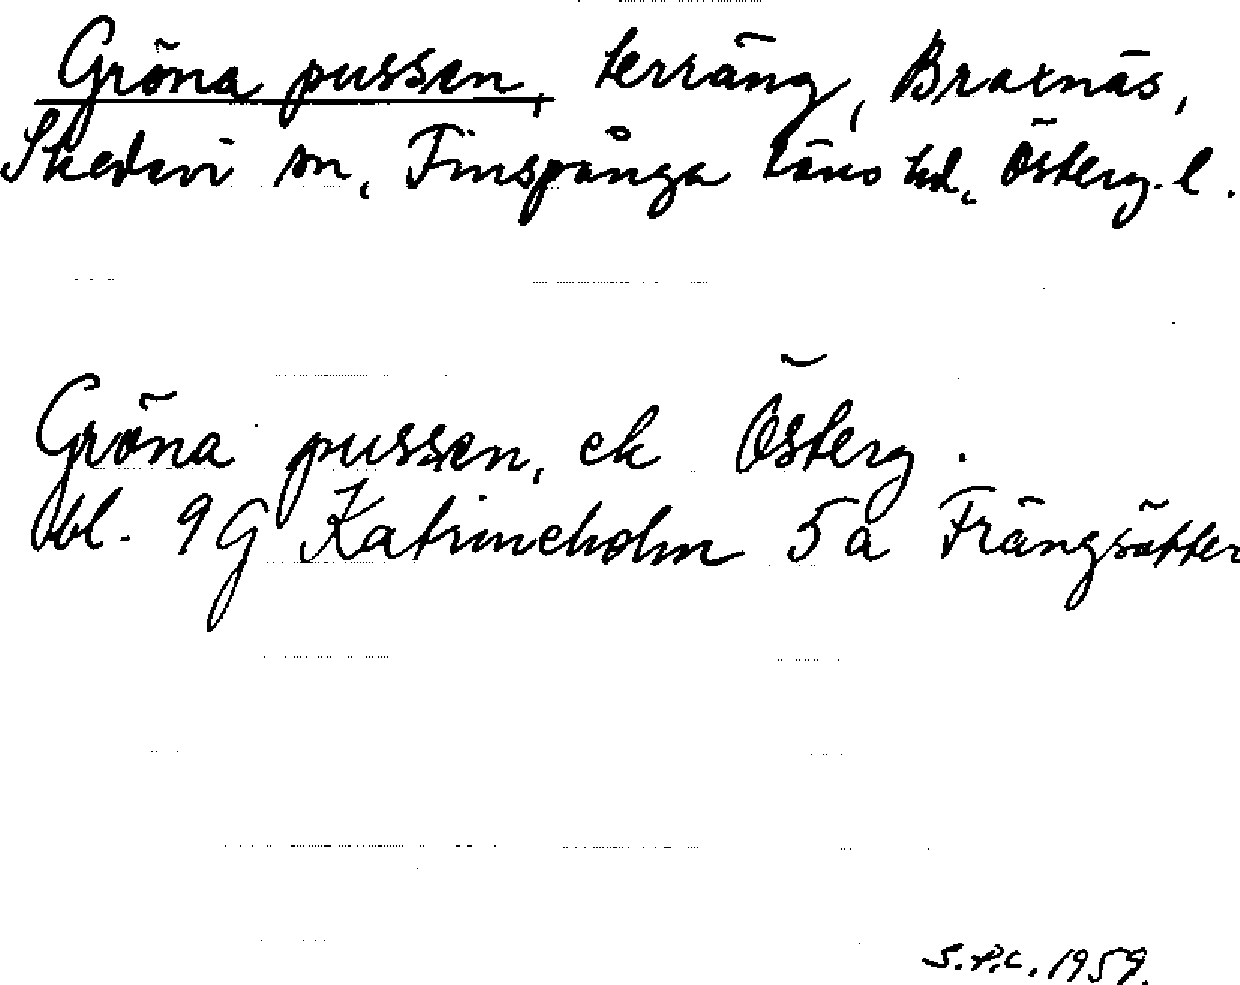 Gröna pussen, terräng, Braxnäs,
Skedevi sn, Finspånga läns hd, Österg. l.
Gröna pussen, ek Österg.
bl. 9G Katrineholm 5a Frängsätter
S.P.C. 1959.